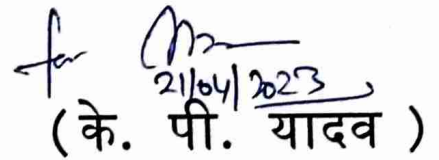 for
21/04/2023
( के. पी. यादव )